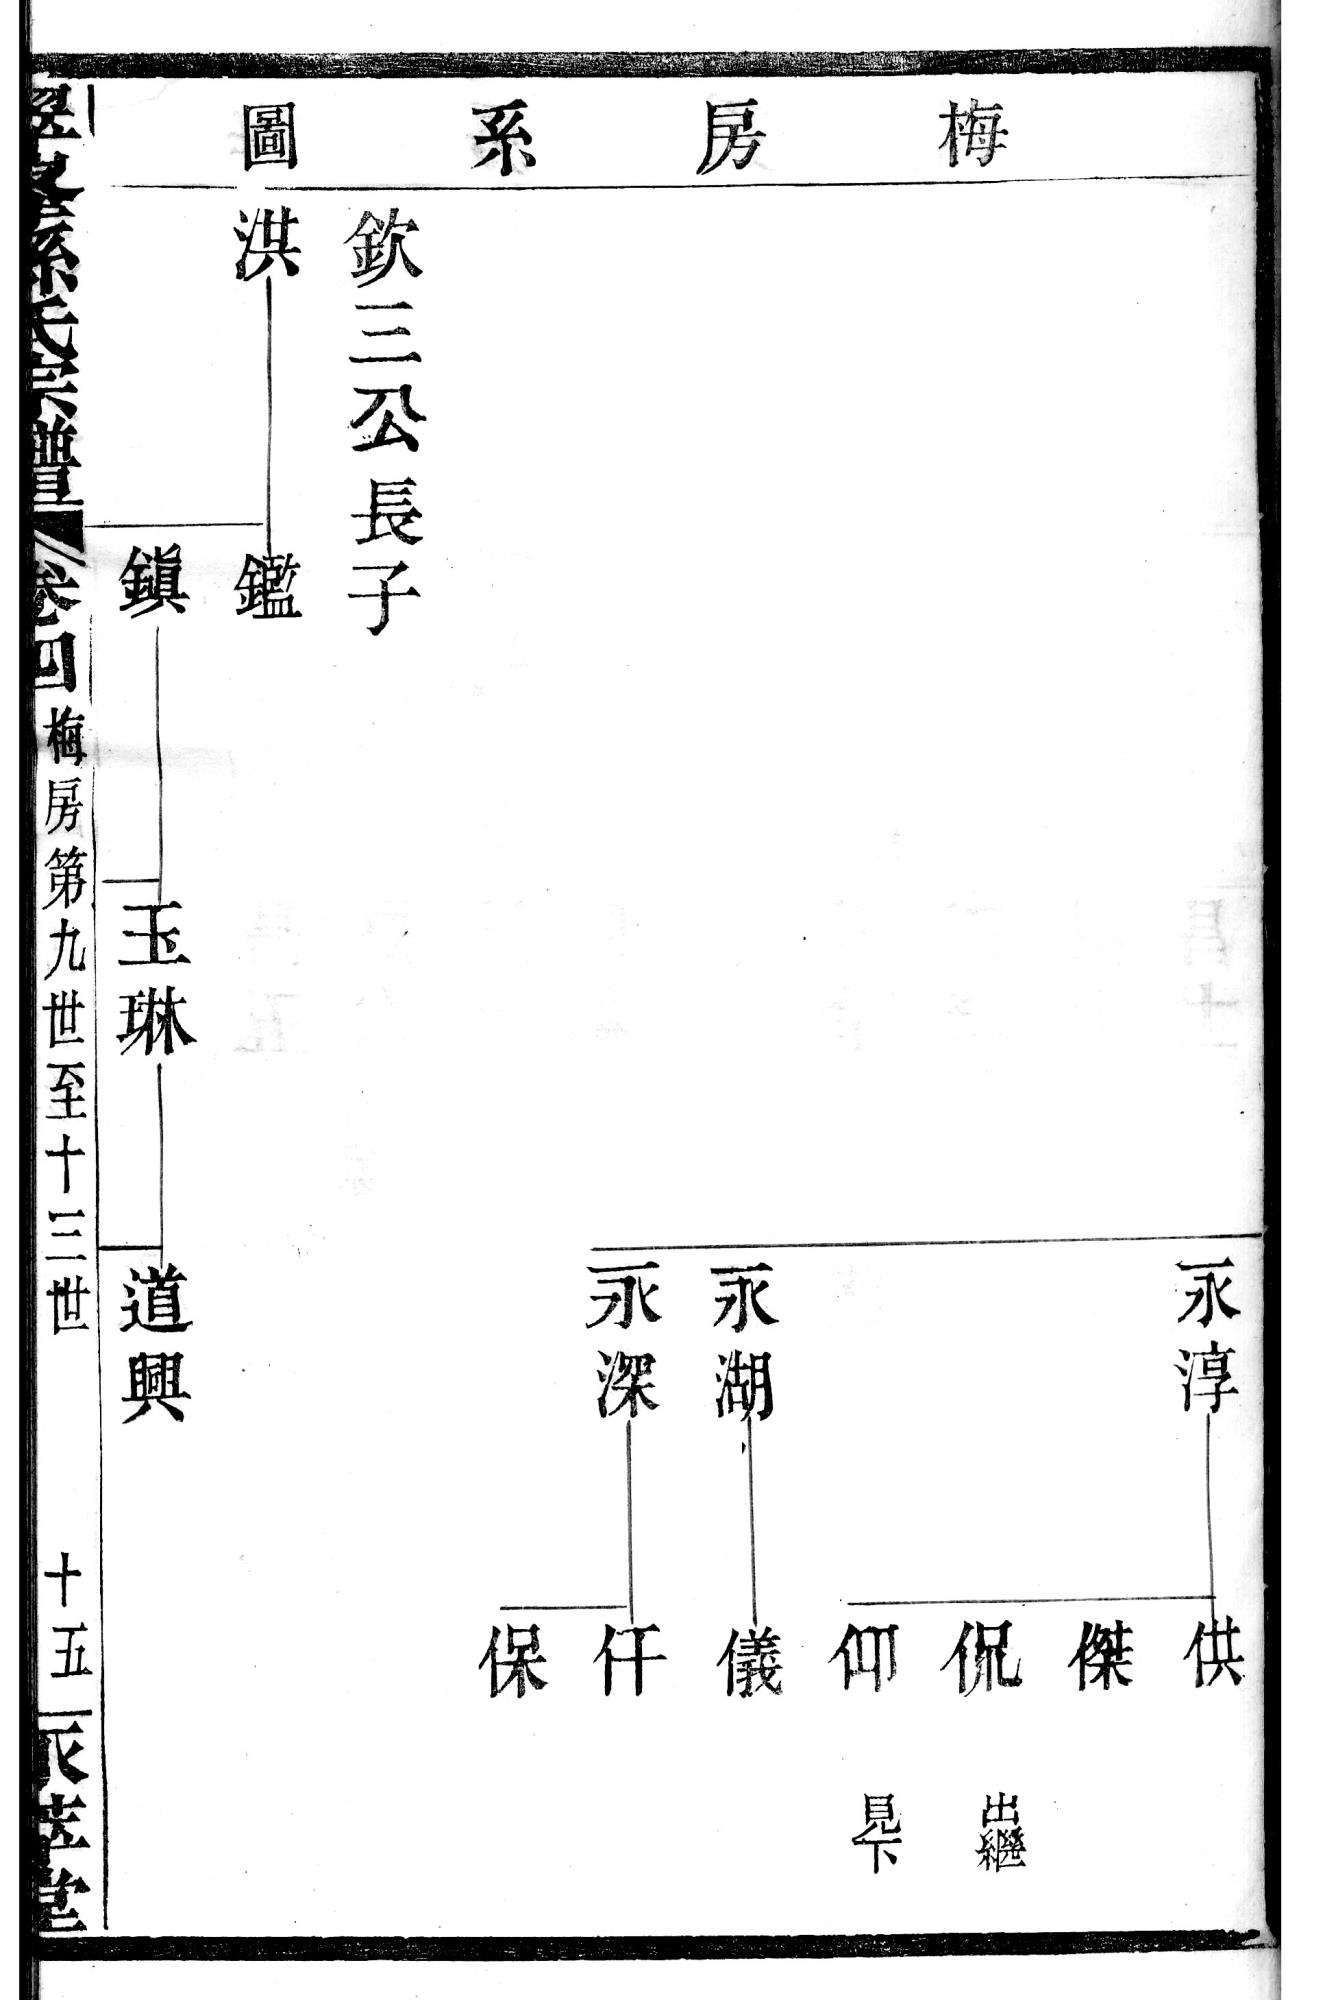 梅房系圖
永淳
供
傑
侃
出繼
仰
見下
永湖
儀
永深
仟
保
欽三公長子
洪
鑑
鎭
玉琳
道興
孫氏宗譜
卷四
梅房第九世至十三世
十五